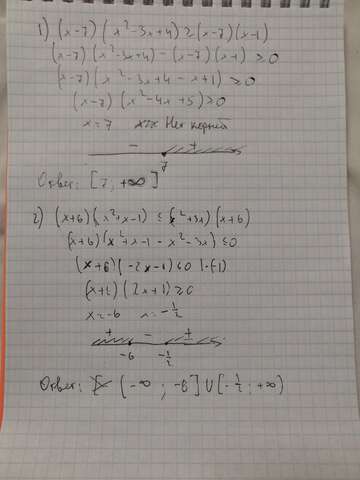 1) (x-7)(x²-3x+4) ≥ (x-7)(x-1)
(x-7)(x²-3x+4) - (x-7)(x-1) ≥ 0
(x-7)(x²-3x+4-x+1) ≥ 0
(x-7)(x²-4x+5) ≥ 0
x=7 Нет корней
- +
7
Ответ: [7; +∞]
2) (x+6)(x²+x-1) ≤ (x²+3x)(x+6)
(x+6)(x²+x-1-x²-3x) ≤ 0
(x+6)(-2x-1) ≤ 0 |·(-1)
(x+6)(2x+1) ≥ 0
x=-6 x=-1/2
+ - +
-6 -1/2
Ответ: (-∞; -6] U [-1/2; +∞)